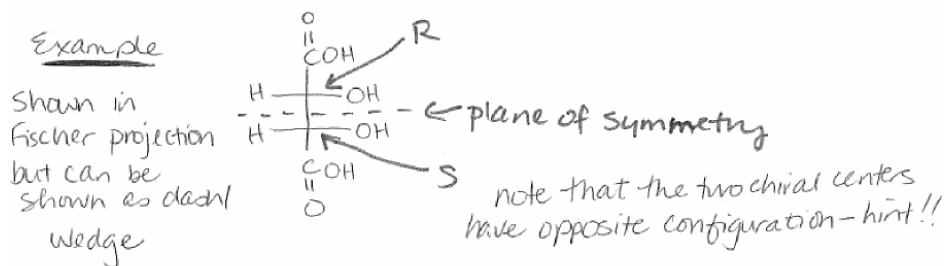 Example
Shown in
Fischer projection
but can be
shown as dash/
wedge
O
COH
R
H OH
← plane of symmetry
H OH
COH
S
O
note that the two chiral centers
have opposite configuration - hint!!